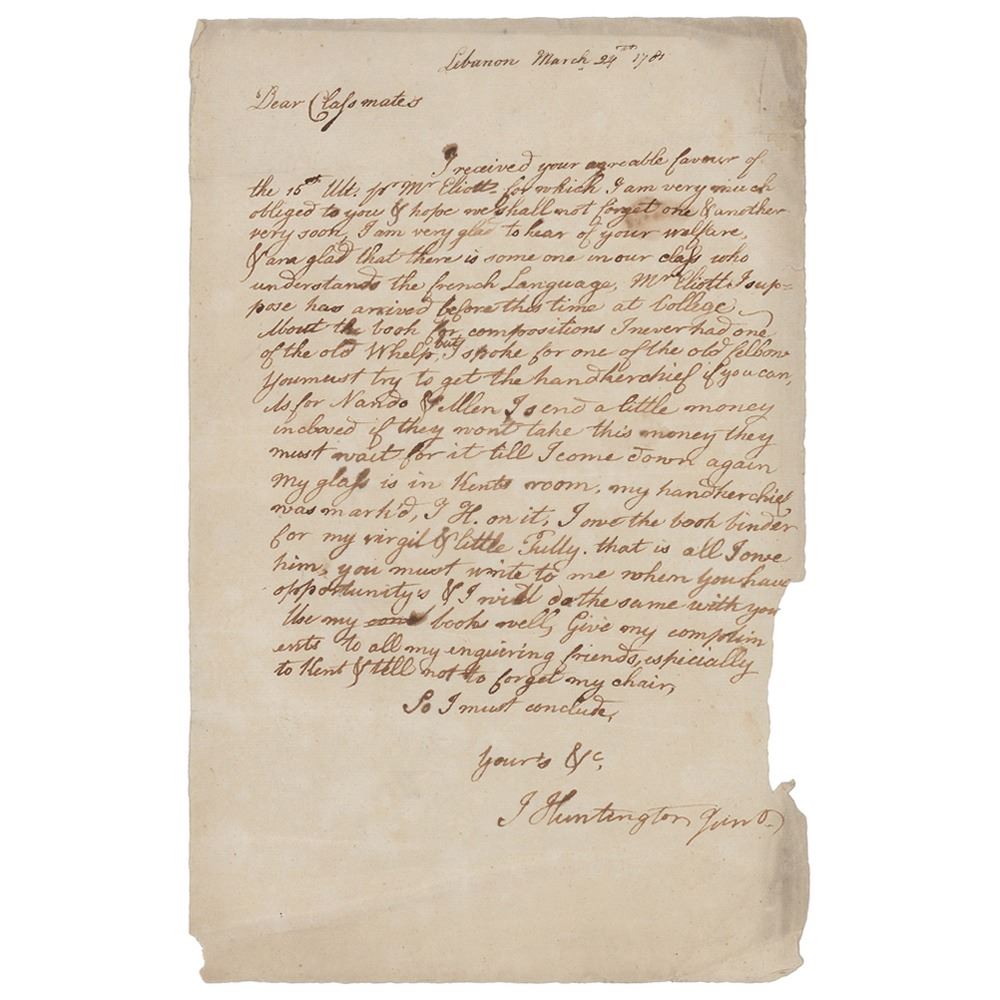 Lebanon March 24th 1781
Dear Classmates
I received your agreable favour of
the 15th Ult. pr Mr Eliott for which I am very much
obliged to you & hope we shall not forget one & another
very soon, I am very glad to hear of your welfare,
& am glad that there is some one in our class who
understands the french Language, Mr Eliott I sup=
pose has arrived before this time at College
About the book for compositions I never had one
of the old Whelp, but I spoke for one of the old fellow
You must try to get the handkerchief if you can,
As for Nando & Allen I send a little money
inclosed if they wont take this money they
must wait for it till I come down again
My glass is in Kents room, my handkerchief
was mark'd, I H. on it, I owe the book binder
for my virgil & little Tully. that is all I owe
him, you must write to me when you have
opportunity's & I will do the same with you
Use my books well, Give my complim
ents to all my enquiring friends, especially
to Kent & tell not to forget my chair,
So I must conclude,
Yours &c,
J Huntington Junr